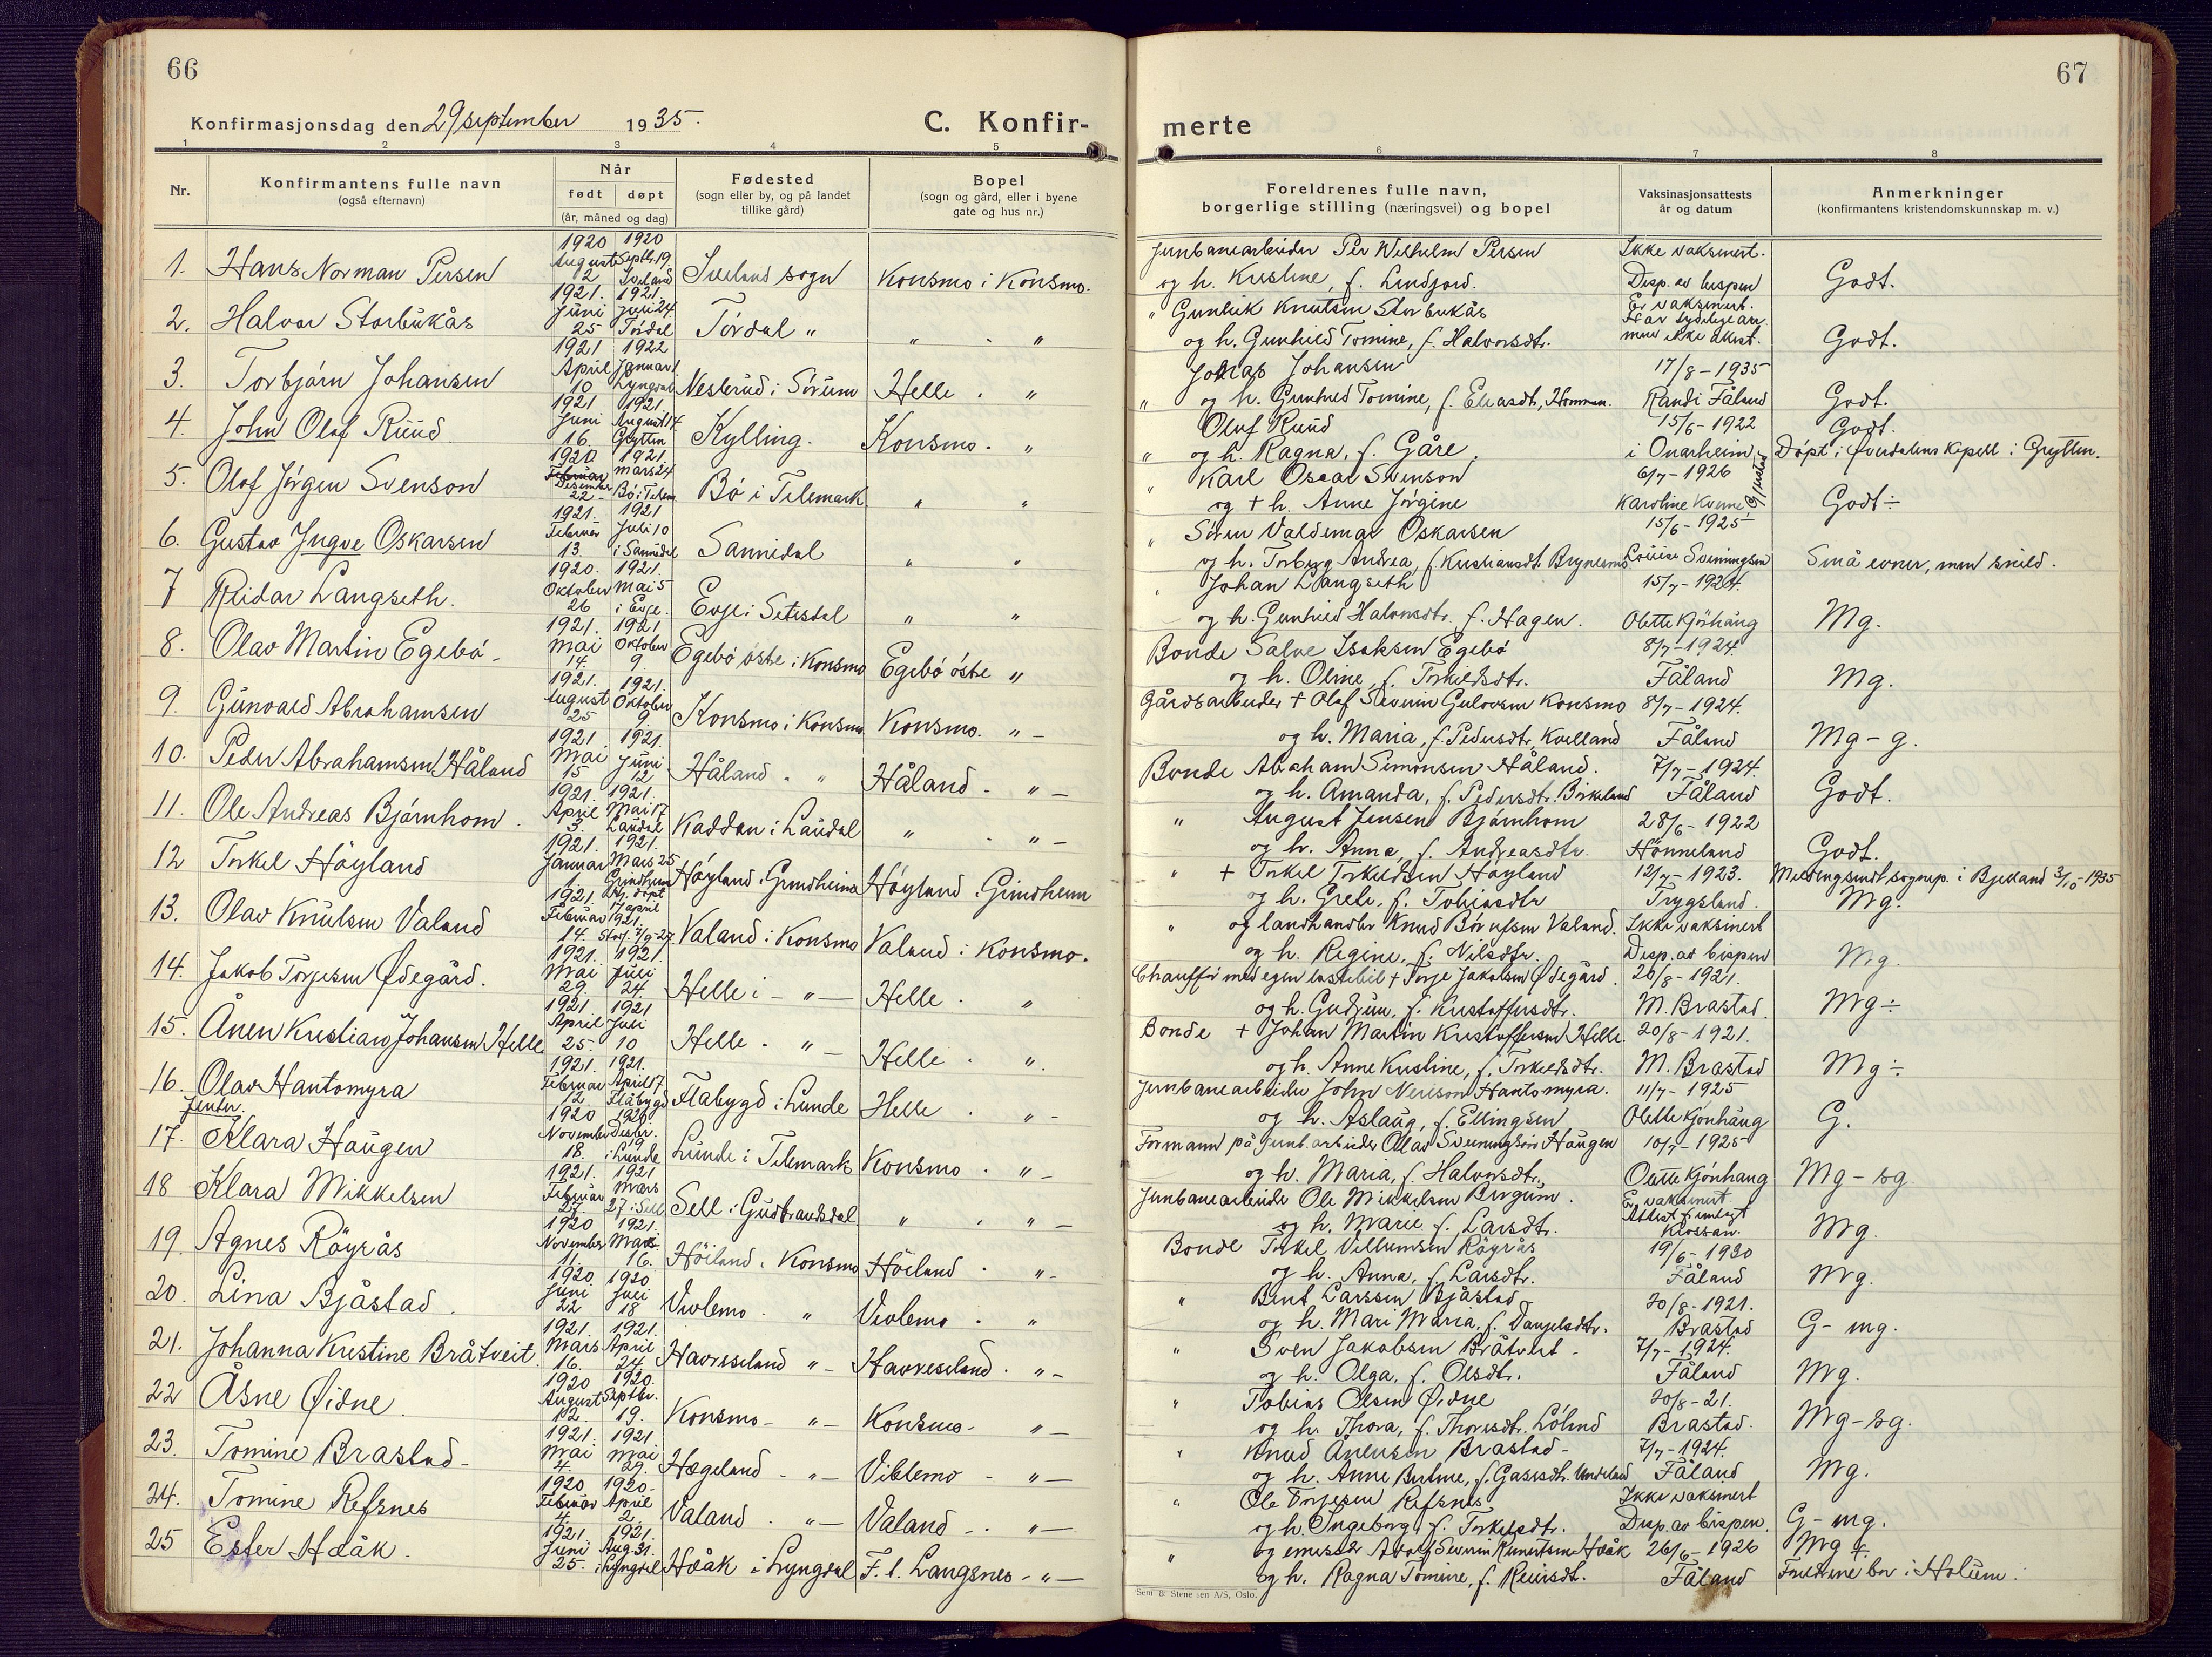 66
Konfirmasjonsdag den 29 september 1935.
C. Konfir-
1 2 3 4 5
Nr.
Konfirmantens fulle navn
(også efternavn)
Når
født døpt
(år, måned og dag)
Fødested
(sogn eller by, og på landet
tillike gård)
Bopel
(sogn og gård, eller i byene
gate og hus nr.)
1. Hans Norman Persen 1920 August 2 1920 Septbr. 19. Iveland Iveland sogn Konsmo i Konsmo.
2. Halvor Storbukås 1921. Juni 25 1921. Juli 24. Tördal Tördal " " . "
3. Torbjörn Johansen 1921 April 10 1922 Januar 1. Lyngdal Nesterud i Sörum Helle . "
4. John Olaf Ruud 1921 Juni 16. 1921. August 14 Grytten Kylling. Konsmo. "
5. Olaf Jörgen Svenson 1920 Februar Desember 22 1921. Mars 24 Bö i Telem. Bö i Telemark " "
6. Gustav Ingve Oskarsen 1921. Februar 13. 1921 Juli 10 i Sannidal Sannidal " "
7 Reidar Langseth. 1920. Oktober 26 1921. Mai 5 i Evje. Evje i Setesdal " "
8. Olav Martin Egebö 1921. Mai 14. 1921 Oktober 9. Egebö östre i Konsmo Egebö östre "
9. Gunvald Abrahamsen 1921. August 25 1921. Oktober 9. Konsmo i Konsmo Konsmo. " –
10. Peder Abrahamsen Håland 1921. Mai 15 1921. Juni 12 Håland . " Håland . " –
11. Ole Andreas Bjørnhom . 1921. April 3. 1921. Mai 17 Laudal Kaddan i Laudal " . " –
12 Torkel Höyland 1921. Januar 1921. Mars 25 Grindheim Höyland i Grindheim Höyland i Grindheim
13. Olav Knutsen Valand 1921. Februar 14. Hj. døpt 17 april 1921. Stadf. Valand i Konsmo Valand i Konsmo.
14. Jakob Torjesen Ødegård. 1921. Mai 29. 1921. Juli 24. Helle i – " – Helle . "
15. Ånen Kristian Johansen Helle 1921 April 25 1921 Juli 10 Helle . " – Helle . "
16. Olav Hantomyra 1921. Februar 12. 1921. April 17 Flåbygd Flåbygd i Lunde Helle . " –
Jenter.
17. Klara Haugen 1920 November 18. 1920. Desbr. 19 i Lunde Lunde i Telemark Konsmo . " –
18 Klara Mikkelsen 1921. Februar 27 1921 Mars 27 i Sell Sell i Gudbrandsdal " . " –
19. Agnes Röyrås 1920 November 11. 1921. Mars 16. Höiland i Konsmo Höiland . " –
20. Lina Bjåstad . 1920. Juni 22 1920 Juli 18 Vivlemo . " Vivlemo . "
21. Johanna Kristine Bråtveit. 1921. Mars 16. 1921. April 24. Havreseland " – Havreseland . " –
22 Åsne Øidne . 1920 August 12. 1920. Septbr. 19. Konsmo – " – Konsmo – " –
23. Tomine Brastad – 1921. Mai 4. 1921 Mai 29. Hægeland – " – Viblemo – " –
24. Tomine Refsnes 1920 Februar 4. 1920. April 2. Valand . " – Valand – . " –
25 Ester Hååk . 1921. Juni 25. 1921. Aug. 31. i Lyngdal Hååk i Lyngdal F. l. Langsnes – " –
67
merte
6 7 8
Foreldrenes fulle navn,
borgerlige stilling (næringsvei) og bopel
Vaksinasjonsattests
år og datum
Anmerkninger
(konfirmantens kristendomskunnskap m. v.)
Jernbanearbeider Per Wilhelm Persen Ikke vaksinert.
og h. Kristine, f. Lindjord. Disp. av bispen Godt.
" Gunleik Knutsen Storbukås Er vaksinert. Har tydelige arr.
og h. Gunhild Tomine, f. Halvorsdtr. men ikke attest. Godt.
Jonas Johansen 17/8 – 1935
" og h. Gunhild Tomine, f. Eliasdt, Homman. Randi Fåland Godt.
Olaf Ruud 15/6 – 1922 Godt.
" og h. Ragna, f. Gåre. i Onarheim Döpt i Øverdalens Kapell i Grytten.
" Karl Oscar Svenson 6/7 – 1926
og + h. Anne Jörgine Karoline Kverne Godt ÷
" Sören Valdemar Oskarsen 15/6 – 1925
og h. Torbjørg Andrea, f. Kristiansdt. Louise Sveiningsen Små evner, men snild.
" Johan Langseth 15/7 – 1924.
og h. Gunhild Halvorsdtr, f. Hagen. Olette Mg.
Bonde Salve Isaksen Egebö 8/7 – 1924.
og h. Oline, f. Torkildsdtr. Fåland Mg.
Gårdsarbeider + Olaf Severin Gulovsen Konsmo 8/7 – 1924.
og h. Maria, f. Pedersdtr, Kvelland Fåland Mg – g.
Bonde Abraham Simonsen Håland. 7/7 – 1924.
og h. Amanda, f. Pedersdtr. Birkeland Fåland Godt.
" August Jensen Bjørnhom 28/6 – 1922
og h. Anna, f. Andreasdtr. Hönneland Godt.
" + Torkel Torkildsen Höyland 12/7 – 1923. Melding sendt sognep. i Bjelland 3/10 – 1935
og h. Grete, f. Tobiasdtr Trygsland. Mg.
" og landhandler Knud Börufsen Valand. Ikke vaksinert
og h. Regine, f. Nilsdtr. Disp. av bispen Mg.
Chauffør med egen lastebil + Torje Jakobsen Ødegård. 20/8 – 1921.
og h. Gudrun, f. Kristoffersdtr. M. Brastad. Mg ÷
Bonde + Johan Martin Kristoffersen Helle. 20/8 – 1921.
og h. Anne Kristine, f. Torkildsdtr. M. Brastad Mg ÷
Jernbanearbeider John Hantomyra. 11/7 – 1925
og h. Aslaug, f. Ellingsen Olette Kjönhaug G.
Formann på jernb. arbeider Olav Sveinungson Haugen 10/7 – 1925
og h. Maria, f. Halvorsdtr. Olette Kjönhaug Mg – sg
Jernbanearbeider Ole Mikkelsen Bergum. Er vaksinert
og h. Marie f. Larsdtr. Attest fremlagt Mg.
Bonde Torkel Villumsen Röyrås 19/6 – 1930
og h. Anna, f. Larsdtr. Fåland Mg.
" Berit Larssen Bjåstad 20/8 – 1921.
og h. Mari Maria, f. Danjelsdtr. Brastad G – mg.
" Sven Jakobsen Bråtveit – 7/7 – 1924.
og h. Olga, f. Olsdtr. Fåland Mg.
" Tobias Olsen Øidne 20/8 – 21.
og h. Thora, f. Thoresdt. Lölind Brastad. Mg – sg.
" Knud Ånensen Brastad – 7/7 – 1924.
og h. Anne Bertine, f. Gasesdtr. Undeland Fåland Mg.
" Ole Torjesen Refsnes Ikke vaksinert
og h. Ingeborg, f. Torkelsdtr. Disp. av bispen. G – mg.
" og emissær Adolf Severin Reinertsen Hååk 26/6 – 1926 Mg
og h. Ragna Tomine, f. Reiersdt. Fåland Foreldrene bor i Holum.
Sem & Stenersen A/S, Oslo.